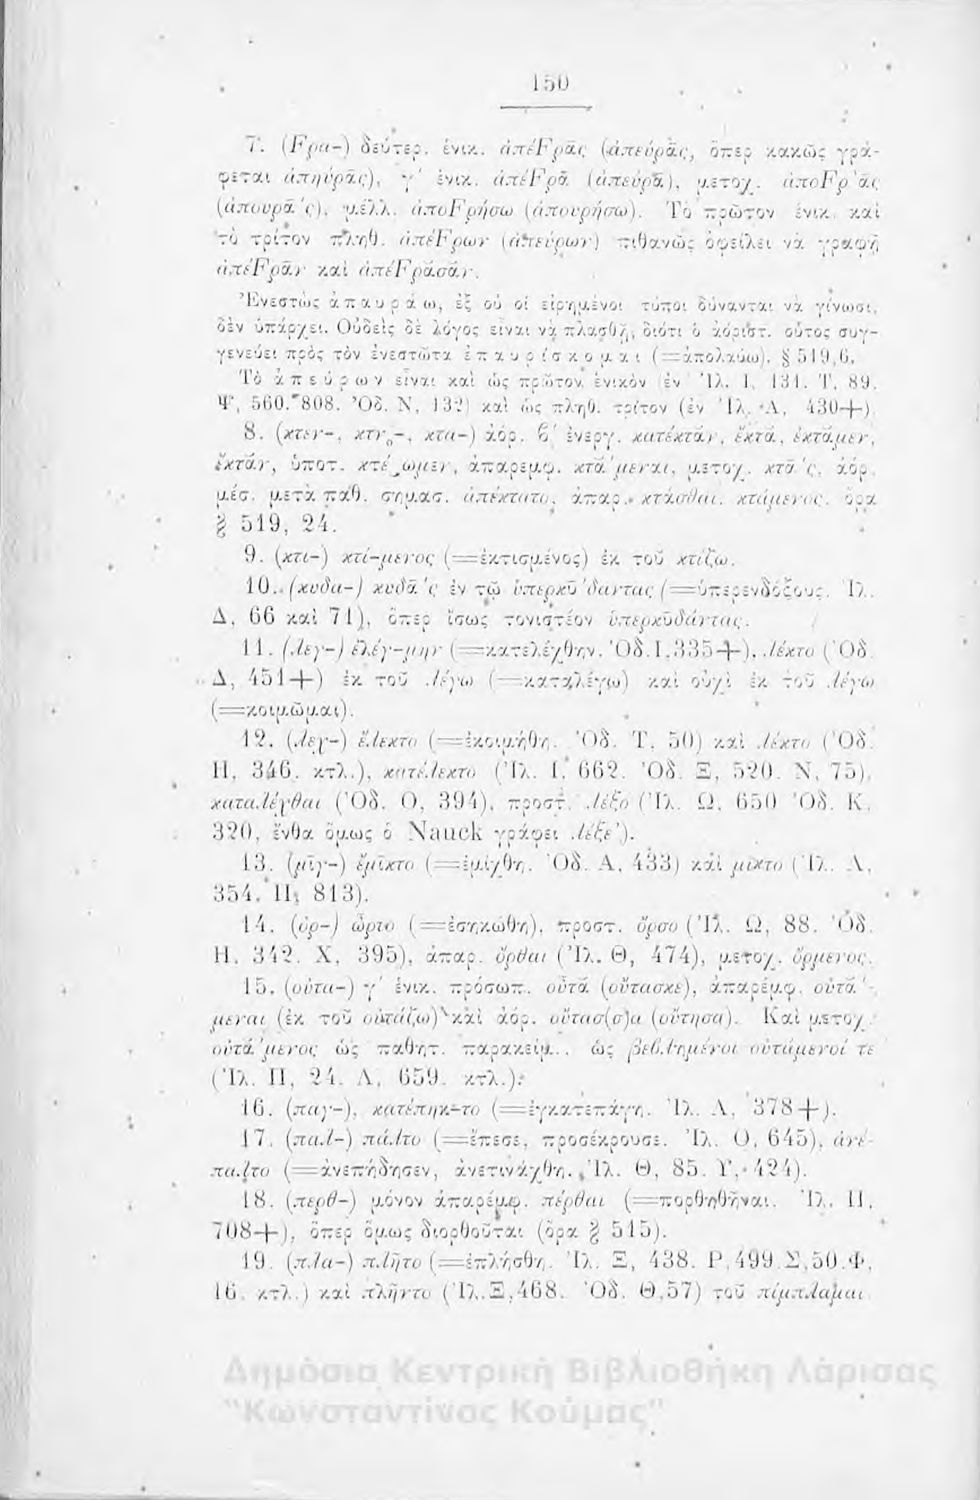 150
7. (Fρα-) δεύτερ. ἑνικ. ἀπέFρᾱς (ἀπεύρᾱς, ὅπερ κακῶς γρά-
φεται ἀπηύρᾱς), γ΄ ἑνικ. ἀπέFρᾱ (ἀπεύρᾱ), μετοχ. ἀποFρ΄ᾱς
(ἀπουρᾱ΄ς), μέλλ. ἀποFρήσω (ἀπουρήσω). Τὸ πρῶτον ἑνικ. καὶ
τὸ τρίτον πληθ. ἀπέFρων (ἀπεύρων) πιθανῶς ὀφείλει νὰ γραφῇ
ἀπέFρᾱν καὶ ἀπέFρᾰσᾰν.
Ἐνεστὼς ἀπαυράω, ἐξ οὗ οἱ εἰρημένοι τύποι δύνανται νὰ γίνωσι,
δὲν ὑπάρχει. Οὐδεὶς δὲ λόγος εἶναι νὰ πλασθῇ, διότι ὁ ἀόριστ. οὗτος συγ-
γενεύει πρὸς τὸν ἐνεστῶτα ἐπαυρίσκομαι (=ἀπολαύω). § 519,6.
Τὸ ἀπεύρων εἶναι καὶ ὡς πρῶτον ἑνικὸν (ἐν Ἰλ. Ι, 131. Τ, 89.
Ψ, 560. 808. Ὀδ. Ν, 132) καὶ ὡς πληθ. τρίτον (ἐν Ἰλ. Α, 430+)
8. (κτεν-, κτν-, κτα-) ἀόρ. β΄ ἐνεργ. κατέκτᾰν, ἔκτᾰ, ἔκτᾰμεν,
ἔκτᾰν, ὑποτ. κτέωμεν, ἀπαρεμφ. κτᾰ΄μεναι, μετοχ. κτᾱ΄ς, ἀόρ.
μέσ. μετὰ παθ. σημασ. ἀπέκτατο, ἀπαρ. κτάσθαι. κτάμενος. ὅρα
§ 519, 24.
9. (κτι-) κτί-μενος (=ἐκτισμένος) ἐκ τοῦ κτίζω.
10. (κυδα-) κυδᾱ΄ς ἐν τῷ ὑπερκῡ΄δαντας (=ὑπερενδόξους. Ἰλ.
Δ, 66 καὶ 71), ὅπερ ἴσως τονιστέον ὑπερκῡδάντας.
11. (λεγ-) ἐλέγ-μην (=κατελέχθην. Ὀδ.Ι,335+), λέκτο (Ὀδ.
Δ, 451+) ἐκ τοῦ λέγω (=καταλέγω) καὶ οὐχὶ ἐκ τοῦ λέγω
(=κοιμῶμαι).
12. (λεχ-) ἔλεκτο (=ἐκοιμήθη. Ὀδ. Τ, 50) καὶ λέκτο (Ὀδ.
Η, 346. κτλ.), κατέλεκτο (Ἰλ. Ι, 662. Ὀδ. Ξ, 520. Ν, 75),
καταλέχθαι (Ὀδ. Ο, 394), προστ. λέξο (Ἰλ. Ω, 650 Ὀδ. Κ,
320, ἔνθα ὅμως ὁ Nauck γράφει λέξε').
13. (μῐγ-) ἔμῐκτο (=ἐμίχθη. Ὀδ. Α, 433) καὶ μῖκτο (Ἰλ. Λ,
354. Π, 813).
14. (ὀρ-) ὦρτο (=ἐσηκώθη), προστ. ὄρσο (Ἰλ. Ω, 88. Ὀδ.
Η, 342. Χ, 395), ἀπαρ. ὄρθαι (Ἰλ. Θ, 474), μετοχ. ὄρμενος.
15. (οὐτα-) γ΄ ἑνικ. πρόσωπ. οὖτᾰ (οὔτασκε), ἀπαρέμφ. οὐτᾰ΄-
μεναι (ἐκ τοῦ οὐτάζω) καὶ ἀόρ. οὔτασ(σ)α (οὔτησα). Καὶ μετοχ.
οὐτᾰ΄μενος ὡς παθητ. παρακείμ., ὡς βεβλημένοι οὐτάμενοί τε
(Ἰλ. Π, 24. Λ, 659. κτλ.).
16. (παγ-), κατέπηκ-το (=ἐγκατεπάγη. Ἰλ. Λ, 378+).
17. (παλ-) πάλτο (=ἔπεσε, προσέκρουσε. Ἰλ. Ο, 645), ἀνέ-
παλτο (=ἀνεπήδησεν, ἀνετινάχθη. Ἰλ. Θ, 85. Υ, 424).
18. (περθ-) μόνον ἀπαρέμφ. πέρθαι (=πορθηθῆναι. Ἰλ. Π,
708+), ὅπερ ὅμως διορθοῦται (ὅρα § 515).
19. (πλα-) πλῆτο (=ἐπλήσθη. Ἰλ. Ξ, 438. Ρ,499 Σ,50.Φ,
16. κτλ.) καὶ πλῆντο (Ἰλ.Ξ,468. Ὀδ. Θ,57) τοῦ πίμπλαμαι
Δημόσια Κεντρική Βιβλιοθήκη Λάρισας
"Κωνσταντίνος Κούμας"